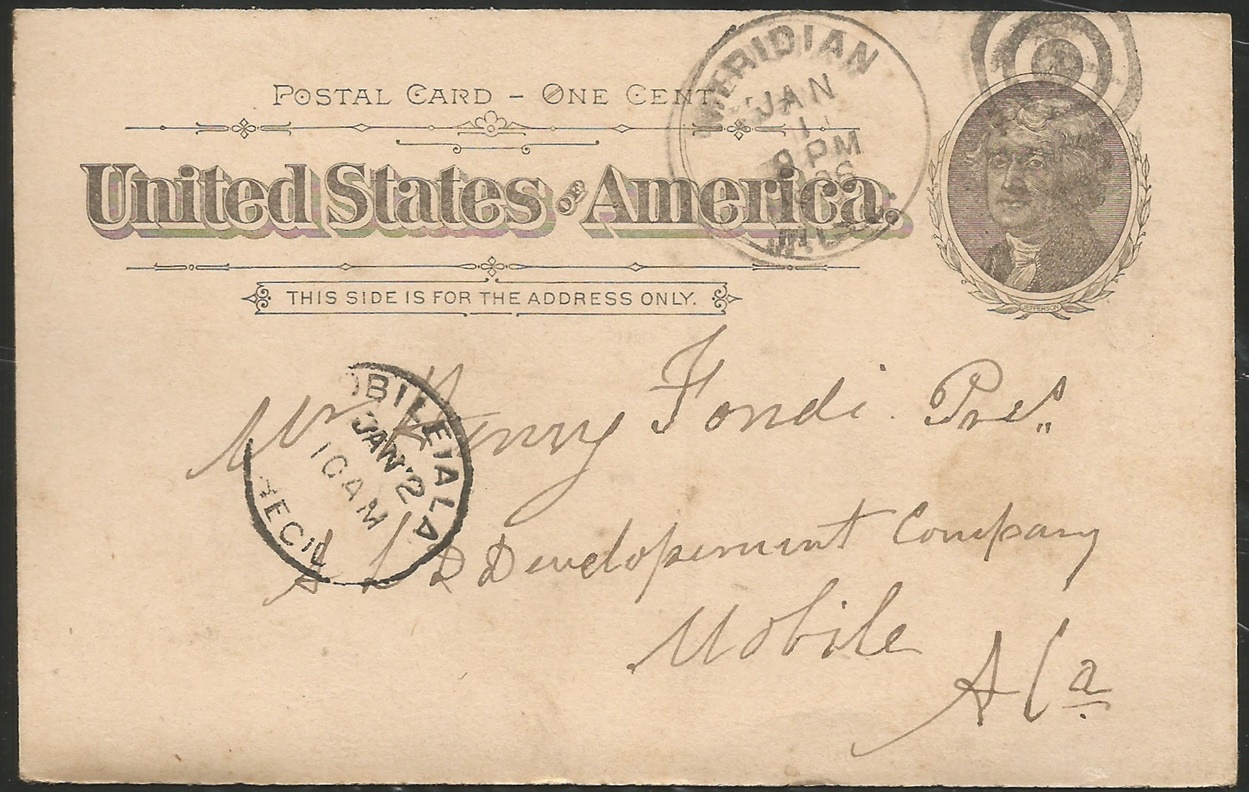 POSTAL CARD – ONE CENT
United States OF America.
THIS SIDE IS FOR THE ADDRESS ONLY.
MERIDIAN
JAN
1
PM
JEFFERSON
OBILE, ALA
JAN 2
10 AM
REC'D
Mr Henry Fondi Prest
& D Developement Company
Mobile
Ala